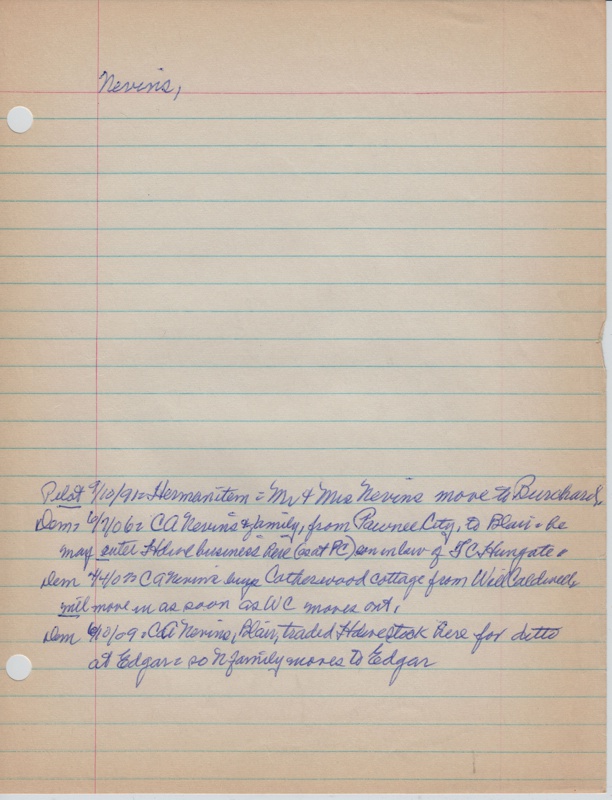 Nevins,
Pilot 9/10/91 = Herman item = Mr & Mrs Nevins move to Burchard,
Dem = 6/7/06 = CA Nevins & family, from Pawnee City, to Blair = he
may enter Hdwe business here (as at PC) son in law of T C Hungate =
Dem CA Nevins buys Catherwood cottage from Will Caldwell,
will move in as soon as WC moves out,
Dem 6/10/09 = CA Nevins, Blair, traded Hdwe stock here for ditto
at Edgar = so N family moves to Edgar